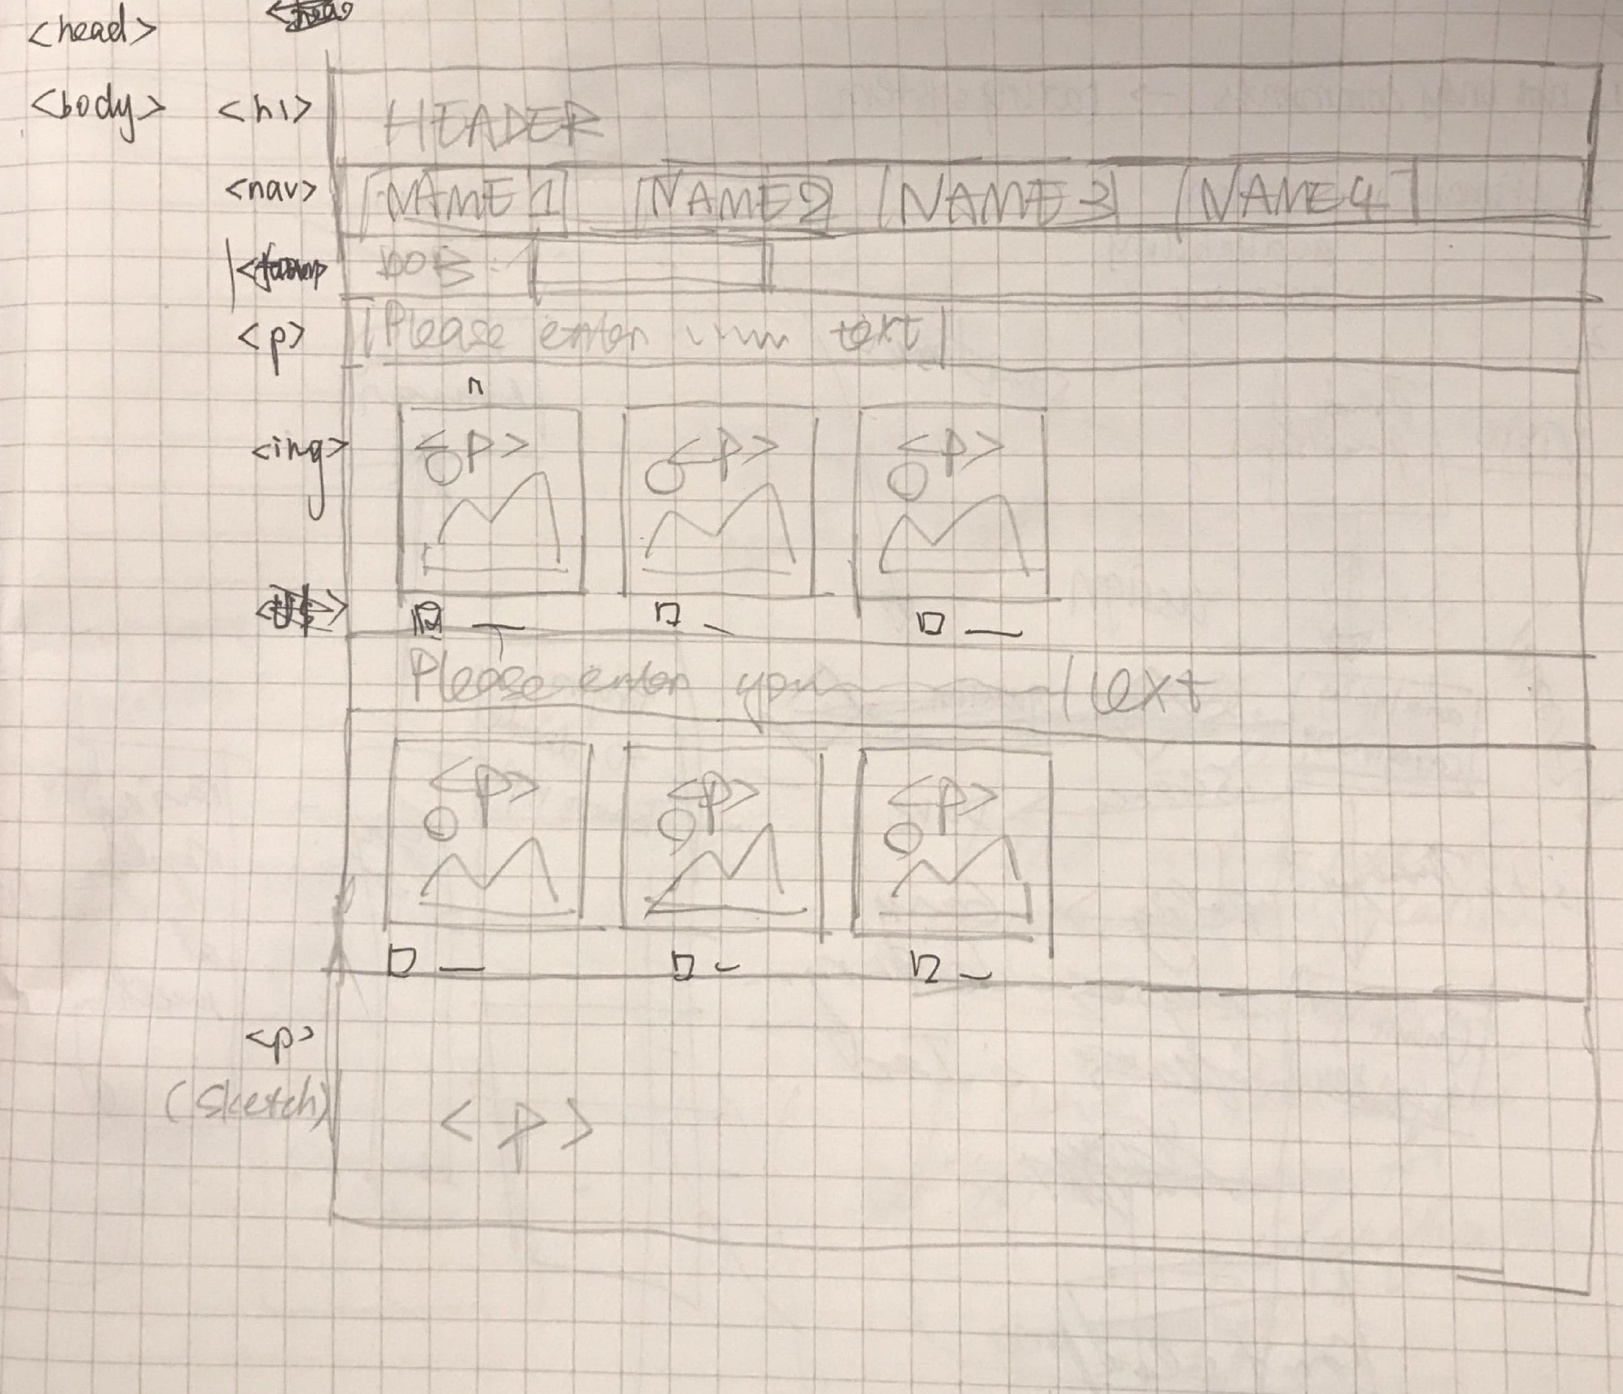 <head>
<body> <h1> HEADER
<nav> NAME 1 NAME2 NAME3 NAME4
DOB:
<p> Please enter text
<img> <p> <p> <p>
Please enter your text
<p> <p> <p>
<p>
(Sketch) <p>